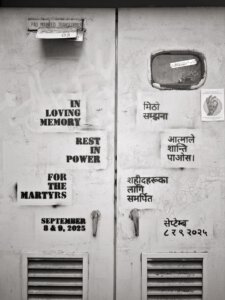 IN
LOVING
MEMORY
REST
IN
POWER
FOR
THE
MARTYRS
SEPTEMBER
8 & 9, 2025
मिठो
सम्झना
आत्माले
शान्ति
पाओस।
शहीदहरूका
लागि
समर्पित
सेप्टेम्बर
८ र ९ २०२५